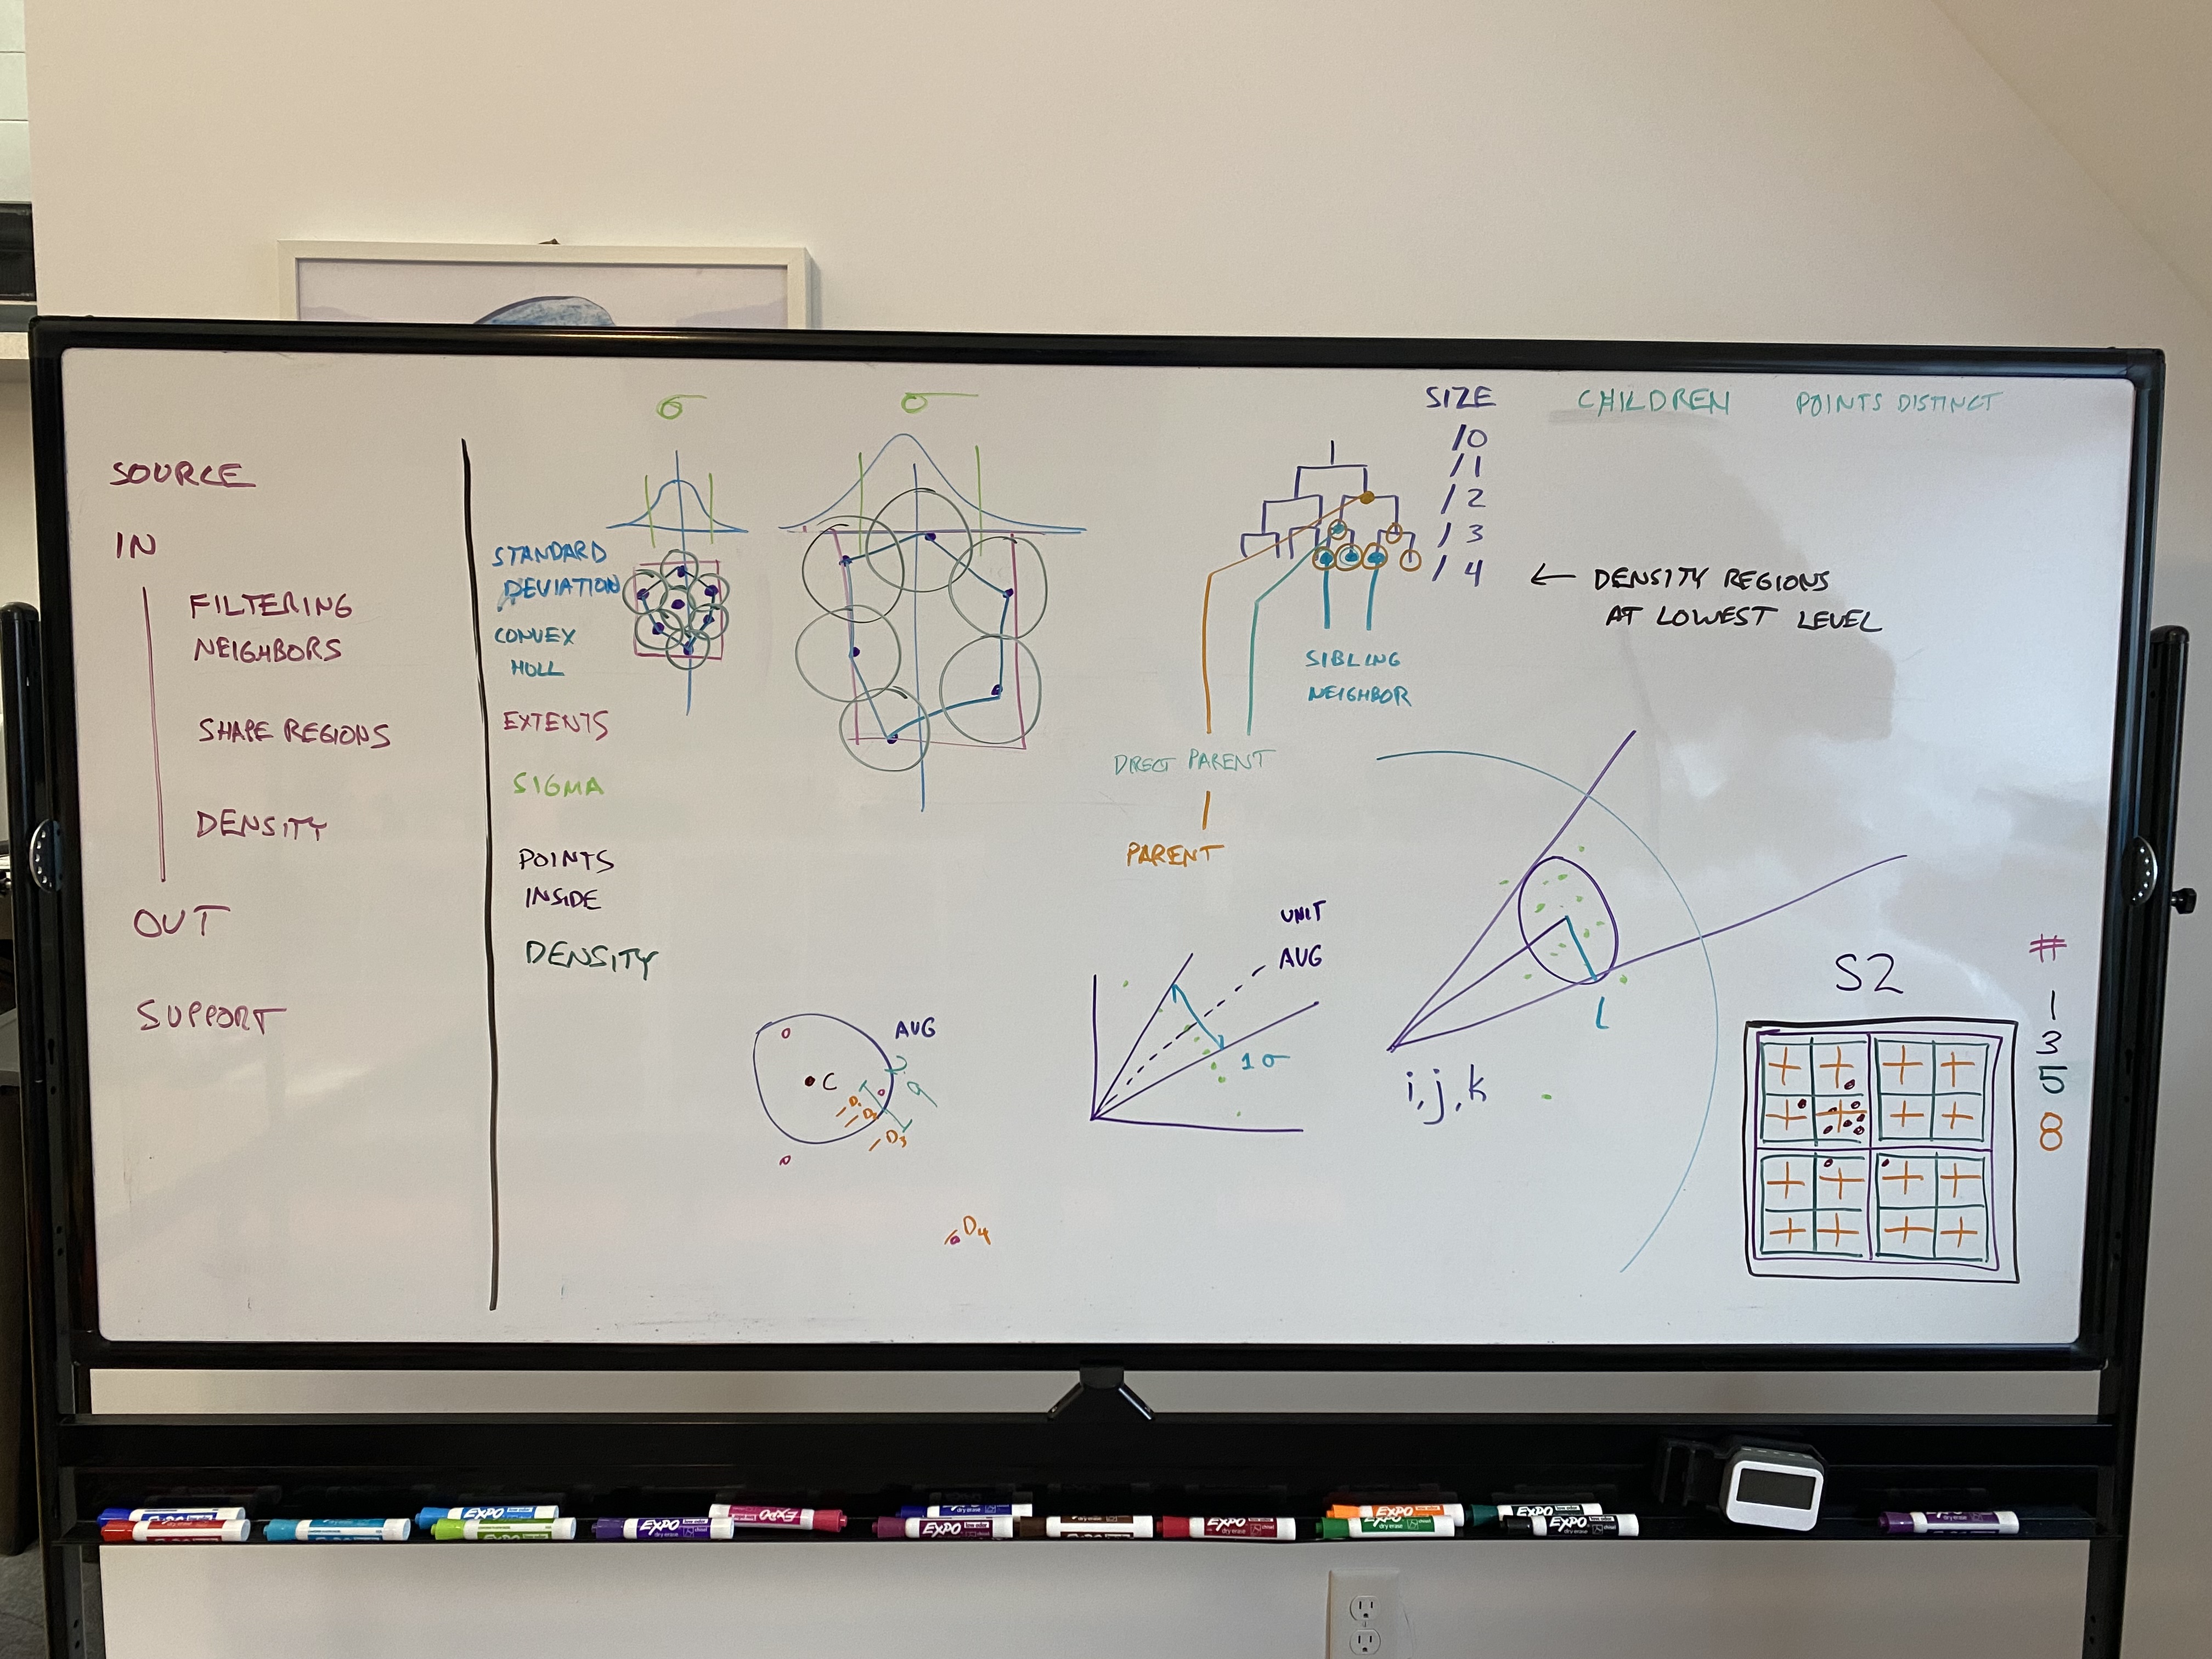 SOURCE
IN
FILTERING
NEIGHBORS
SHAPE REGIONS
DENSITY
OUT
SUPPORT
STANDARD
DEVIATION
CONVEX
HULL
EXTENTS
SIGMA
POINTS
INSIDE
DENSITY
σ
σ
AVG
C
D2
D3
D4
SIZE
CHILDREN
POINTS DISTINCT
/0
/1
/2
/3
/4
← DENSITY REGIONS
AT LOWEST LEVEL
SIBLING
NEIGHBOR
DIRECT PARENT
PARENT
UNIT
AVG
1σ
L
i,j,k
S2
#
1
3
5
8
EXPO
EXPO
EXPO
EXPO
EXPO
EXPO
EXPO
EXPO
EXPO
EXPO
EXPO